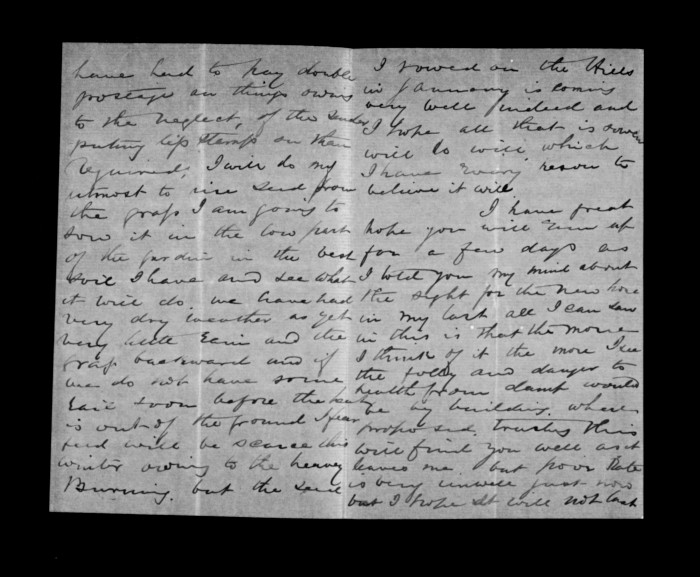 have had to pay double
postage on things owing
to the neglect, of the Sender
puting less stamps on than
required, I will do my
utmost to rise seed from
the grass I am going to
sow it in the low part
of the garden in the best
soil I have and see what
it will do. we have had
very dry weather as yet
very little Rain and the
grass backward and if
we do not have some
Rain soon before the
is out of the ground I fear
feed will be scarce this
winter owing to the heavey
Burning. but the seed
I sowed on the Hills
in January is coming
very well indeed and
I hope all that is sown
will do well which
I have every reson to
believe it will
I have great
hope you will run up
for a few days as
I told you my mind about
the sight for the new
in my last all I can
in this is that the more
I think of it the more I see
the folly and danger to
health from damp would
be by building where
proposed. trusting this
will find you well as it
leaves me. but poor Kate
is very unwell just now
but I hope it will not last